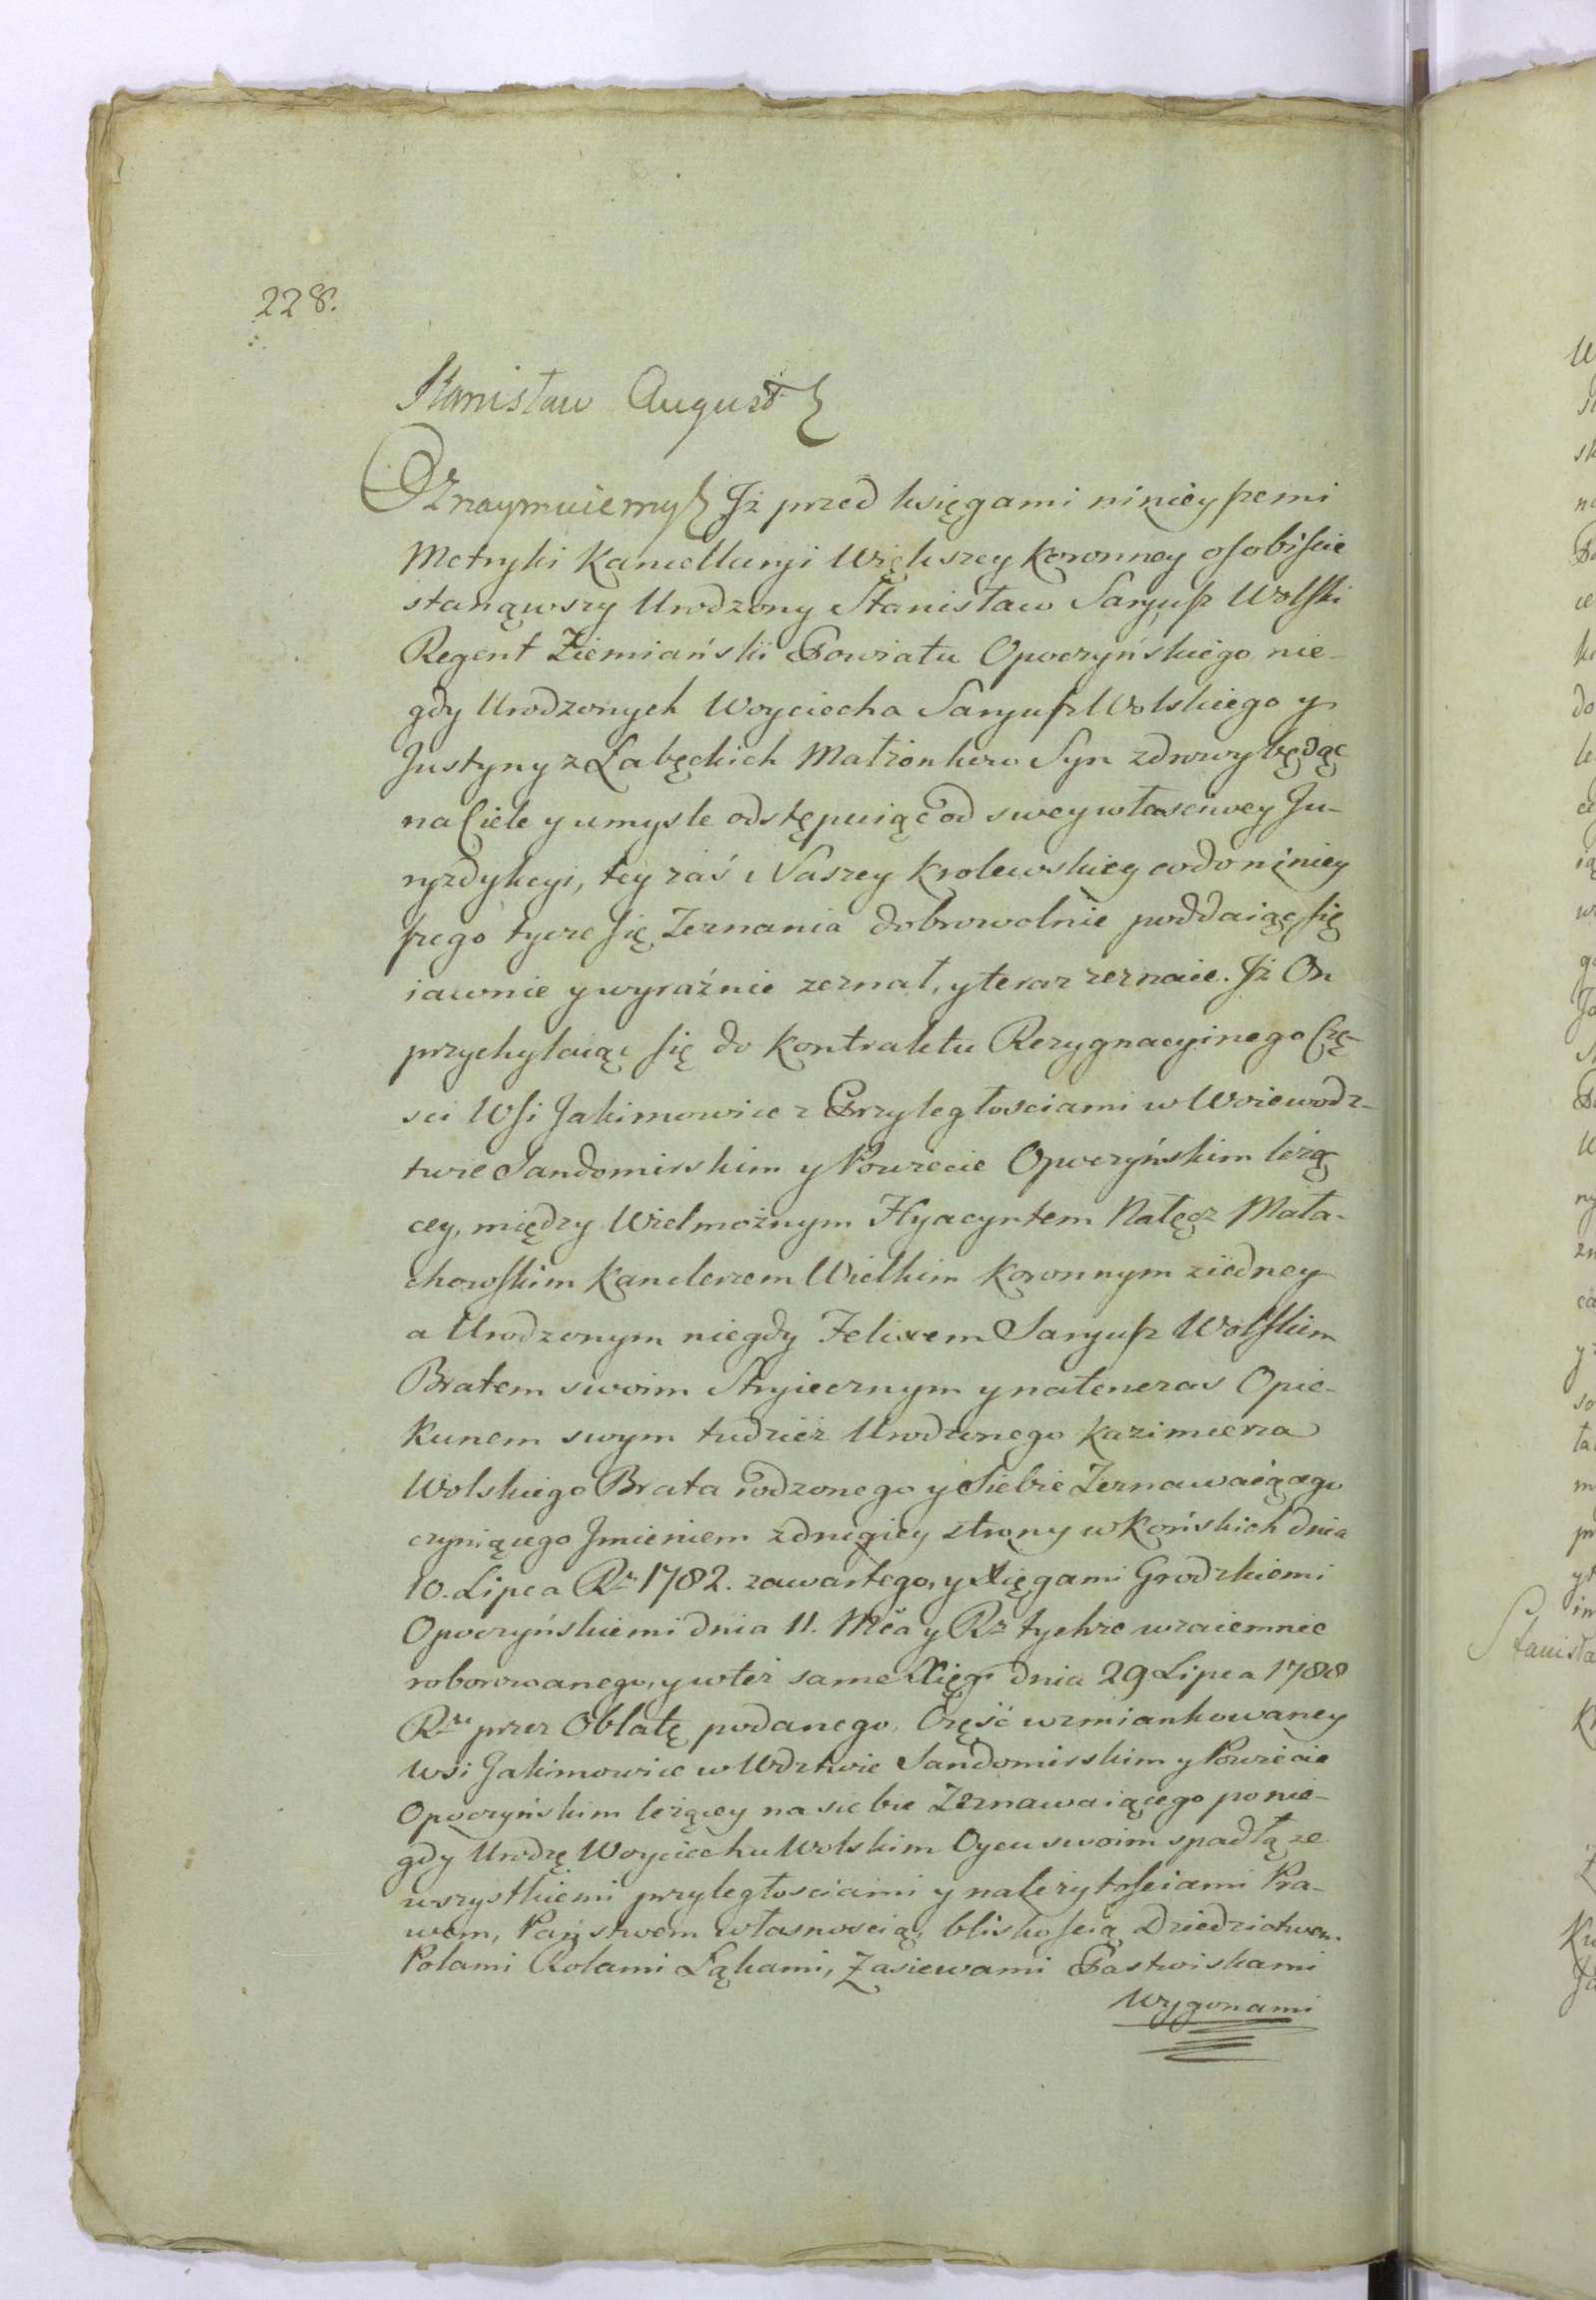 228.
Stanisław August
Oznaymuiemy Jż przed księgami ninieyszemi
Metryki Kancellaryi Większey Koronney osobiście
stanąwszy Urodzony Stanisław Saryusz Wolski
Regent Ziemiański Powiatu Opoczyńskiego nie-
gdy Urodzonych Woyciecha Saryusz Wolskiego y
Justyny z Łabęckich Małżonkow Syn zdrowy będąc
na Ciele y umysle odstępuiąc od swey własciwey Ju-
ryzdykcyi, tey zaś Naszey Krolewskiey co do niniey
szego tycze się Zeznania dobrowolnie poddaiąc się
iawnie y wyraźnie zeznał, y teraz zeznaie. Jż On
przychylaiąc się do Kontraktu Rezygnacyinego Czę-
sci Wsi Jakimowice z Przyległosciami w Woiewodz-
twie Sandomirskim y Powiecie Opoczyńskim leżą
cey, między Wielmożnym Hyacyntem Nałęcz Mała-
chowskim Kanclerzem Wielkim Koronnym z iedney
a Urodzonym niegdy Felixem Saryusz Wolskim
Bratem swoim Stryiecznym y natenczas Opie-
kunem swym tudzież Urodzonego Kazimierza
Wolskiego Brata rodzonego y Siebie Zeznawaiącego
czyniącego Jmieniem z drugiey strony w Końskich dnia
10. Lipca Rz. 1782. zawartego, y Xięgami Grodzkiemi
Opoczyńskiemi dnia 11. Mca y Rz tychże wzaiemnie
roborowanego, y w też same Xięgi dnia 29 Lipca 1788
Rzu przez Oblatę podanego, Część wzmiankowaney
wsi Jakimowice w Wdztwie Sandomirskim y Powiecie
Opoczyńskim leżącey na siebie Zeznawaiącego po nie-
gdy Urodzę Woyciechu Wolskim Oycu swoim spadłą ze
wszystkiemi przyległosciami y należytosciami Pra-
wem, Państwem własnoscią, bliskoscią Dziedzictwem
Polami Rolami Łąkami, Zasiewami Pastwiskami
Wygonami